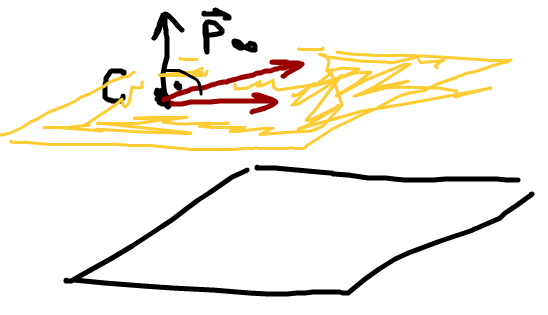 P⃗∞
C